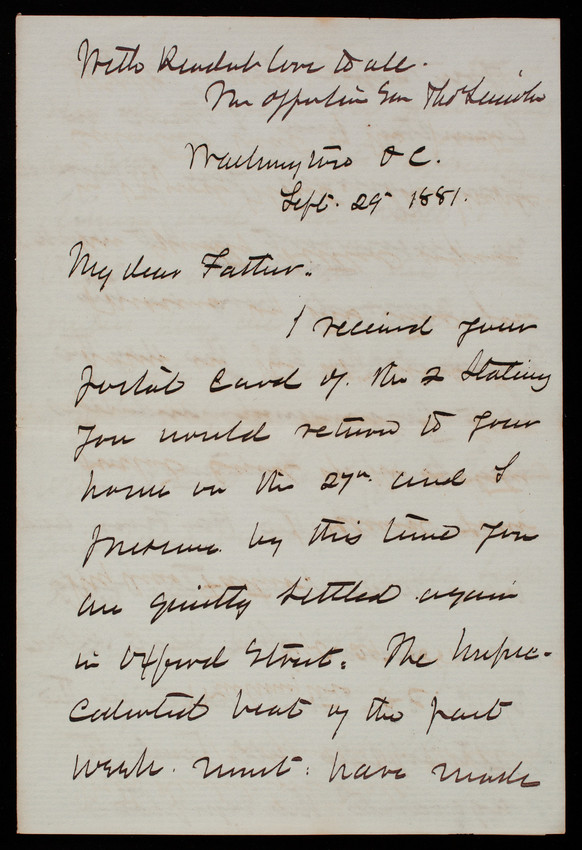 With Kindest love to all.
Thos Lincoln
Washington D C.
Sept. 29 1881.
My dear Father:
I received your
postal card of the 2 Stating
you would return to your
home on the 27th and I
presume by this time you
are quietly settled again
in Oxford Street. The unpre-
cedented heat of the past
week must have made